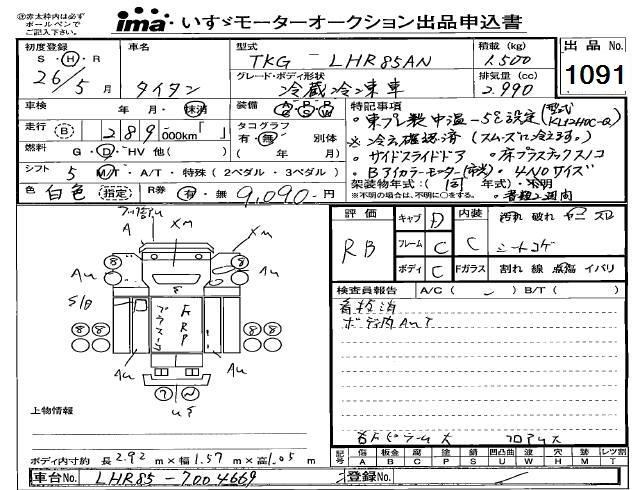 ㊟赤太枠内は必ず
ボールペンで
ご記入下さい。
ima いすゞモーターオークション出品申込書
出品 No.
1091
初度登録
S・H・R
26年5月
車名
タイタン
型式
TKG - LHR85AN
グレード・ボディ形状
冷蔵冷凍車
積載 (kg)
1.500
排気量 (cc)
2.990
車検
年 月・抹消
装備
AC PS PW
走行 (B) 289,000km「 」
タコグラフ
有・無 別体
( 年 月)
燃料
G・D・HV 他( )
シフト
5 M/T・A/T・特殊 (2ペダル・3ペダル)
色
白色 (指定)
R券
有・無 9,090-円
特記事項
・東プレ製中温-5℃設定(型式
※冷え確認済(スムーズに冷えます。)
・サイドスライドドア ・床プラスチックスノコ
架装物年式:(同 年式)・不明
※不明の場合は、不明に○をする。
・書類2週間
評価
RB
キャブ D
フレーム C
ボディ C
内装 C
Fガラス C
汚れ 破れ ヤニ スレ
シートコゲ
割れ 線 点傷 イバリ
検査員報告
A/C( ) B/T( )
看板消
ボディ内AuT
フロアサビ大
上物情報
A
Xm
Xm
Au
Au
S/B
FRP
Au
Au
ボディ内寸約 長2.92 m×幅1.57 m×高1.05 m
記号
傷 A
板金 B
腐 C
塗 P
錆 S
凹凸曲 U
波 W
穴 H
跡 M
ﾒﾚﾂ T
車台No.
LHR85-7004669
登録No.